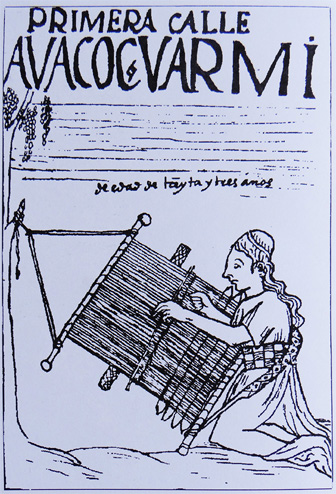 PRIMERA CALLE
AVACOC VARMI
de edad de treynta y tres años